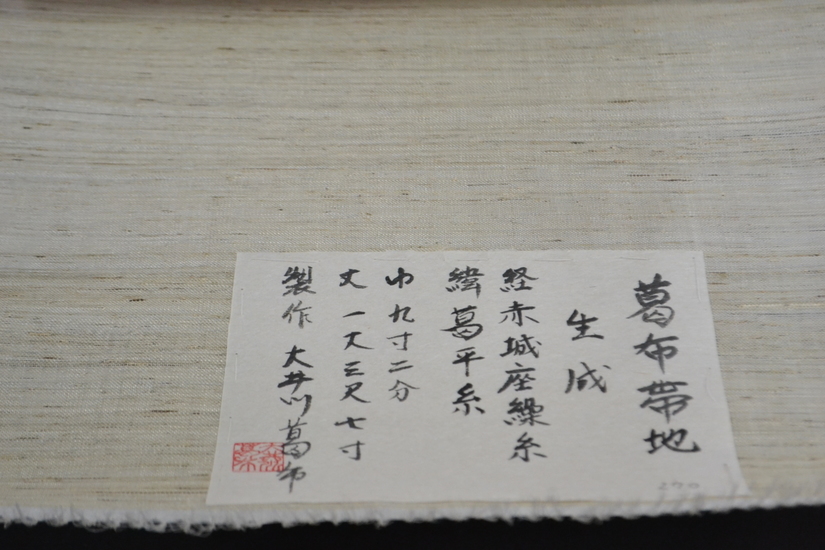 葛布帯地
生成
経赤城座繰糸
緯葛平糸
巾九寸二分
丈一丈三尺七寸
製作大井川葛布